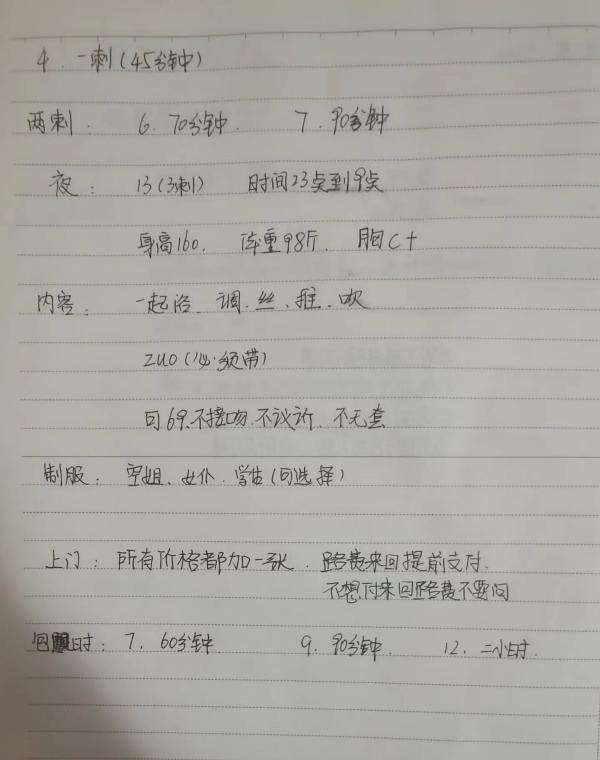 4. 一刺(45分钟)
两刺. 6. 70分钟. 7. 90分钟
夜: 13(3刺) 时间23点到9点
身高160. 体重98斤. 胸C+
内容: 一起浴. 调. 丝. 推. 吹
zuo(必须带)
可69.不接吻.不议价.不无套
制服: 空姐、女仆.学生(可选择)
上门: 所有价格都加一张. 路费来回提前支付.
不想付来回路费不要问
包时: 7. 60分钟 9. 90分钟. 12. 二小时.